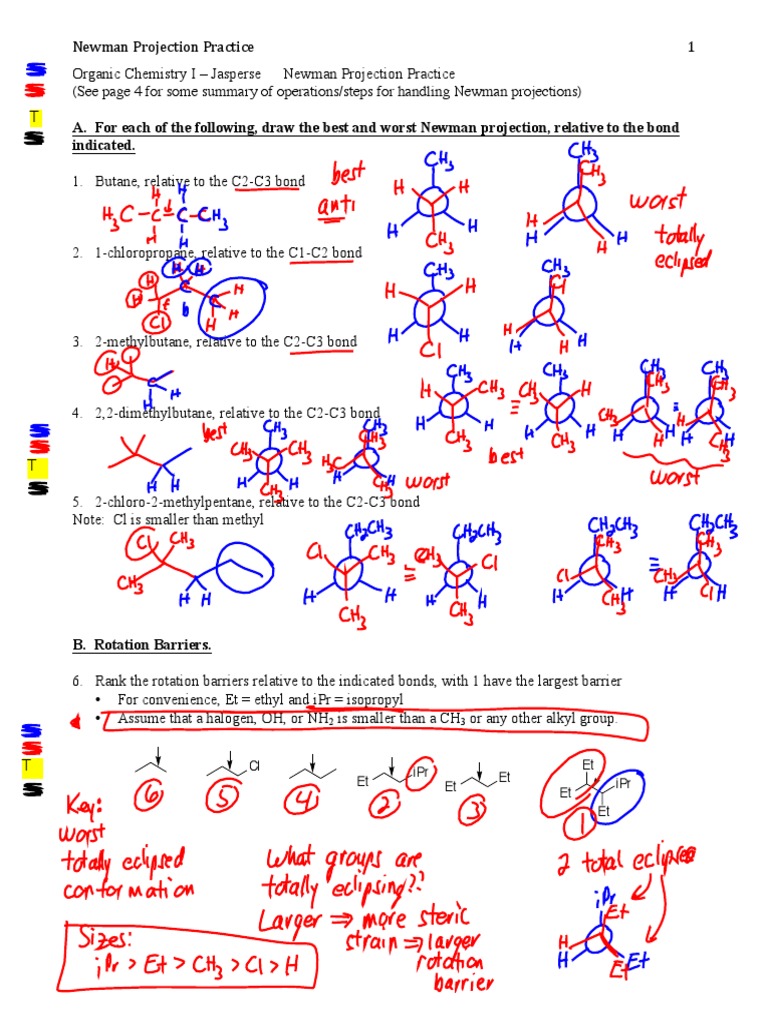 Newman Projection Practice 1
Organic Chemistry I – Jasperse Newman Projection Practice
(See page 4 for some summary of operations/steps for handling Newman projections)
S
S
T
S
A. For each of the following, draw the best and worst Newman projection, relative to the bond
indicated.
1. Butane, relative to the C2-C3 bond
best
anti
H H
H₃C-C-C-CH₃
H H
CH₃
H H
H H
CH₃
CH₃
CH₃
H H
H H
worst
totally
eclipsed
2. 1-chloropropane, relative to the C1-C2 bond
H H H
H C C H
f b H
Cl H
CH₃
H H
H H
Cl
CH₃
Cl
H H
H H
3. 2-methylbutane, relative to the C2-C3 bond
H
H
H
CH₃
H CH₃
H H
CH₃
≡
CH₃
CH₃ H
H H
CH₃
best
CH₃
CH₃
CH₃ H
H H
≡
CH₃
CH₃
H H
H CH₃
worst
4. 2,2-dimethylbutane, relative to the C2-C3 bond
S
S
T
S
H H
best
CH₃
CH₃ CH₃
H H
CH₃
CH₃
CH₃
H₃C H
H CH₃
worst
5. 2-chloro-2-methylpentane, relative to the C2-C3 bond
Note: Cl is smaller than methyl
Cl CH₃
CH₃
H H
CH₂CH₃
Cl CH₃
H H
CH₃
≡
CH₂CH₃
CH₃ Cl
H H
CH₃
CH₂CH₃
CH₃
Cl H
H CH₃
≡
CH₂CH₃
CH₃
CH₃ H
H Cl
B. Rotation Barriers.
6. Rank the rotation barriers relative to the indicated bonds, with 1 have the largest barrier
• For convenience, Et = ethyl and iPr = isopropyl
• Assume that a halogen, OH, or NH₂ is smaller than a CH₃ or any other alkyl group.
S
S
T
S
Cl
Et iPr
Et Et
Et
Et iPr
Et
6 5 4 2 3 1
Key:
worst
totally eclipsed
conformation
What groups are
totally eclipsing??
Larger ⇒ more steric
strain ⇒ larger
rotation
barrier
2 total eclipses
iPr
Et
H
H Et Et
Sizes:
iPr > Et > CH₃ > Cl > H